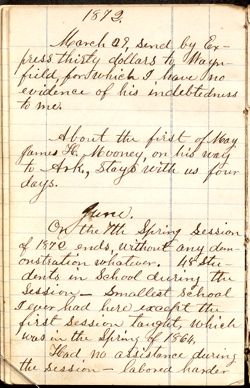 1872.
March 29, send by Ex-
press thirty dollars to Way-
field, for which I have no
evidence of his indebtedness
to me.
About the first of May
James H. Mooney, on his way
to Ark, stays with us four
days.
June.
On the 7th Spring Session
of 1872 ends, without any dem-
onstration whatever. 48 Stu-
dents in School during the
Session – Smallest school
I ever had here except the
first session taught, which
was in the Spring of 1864.
Had no assistance during
the session – labored harder